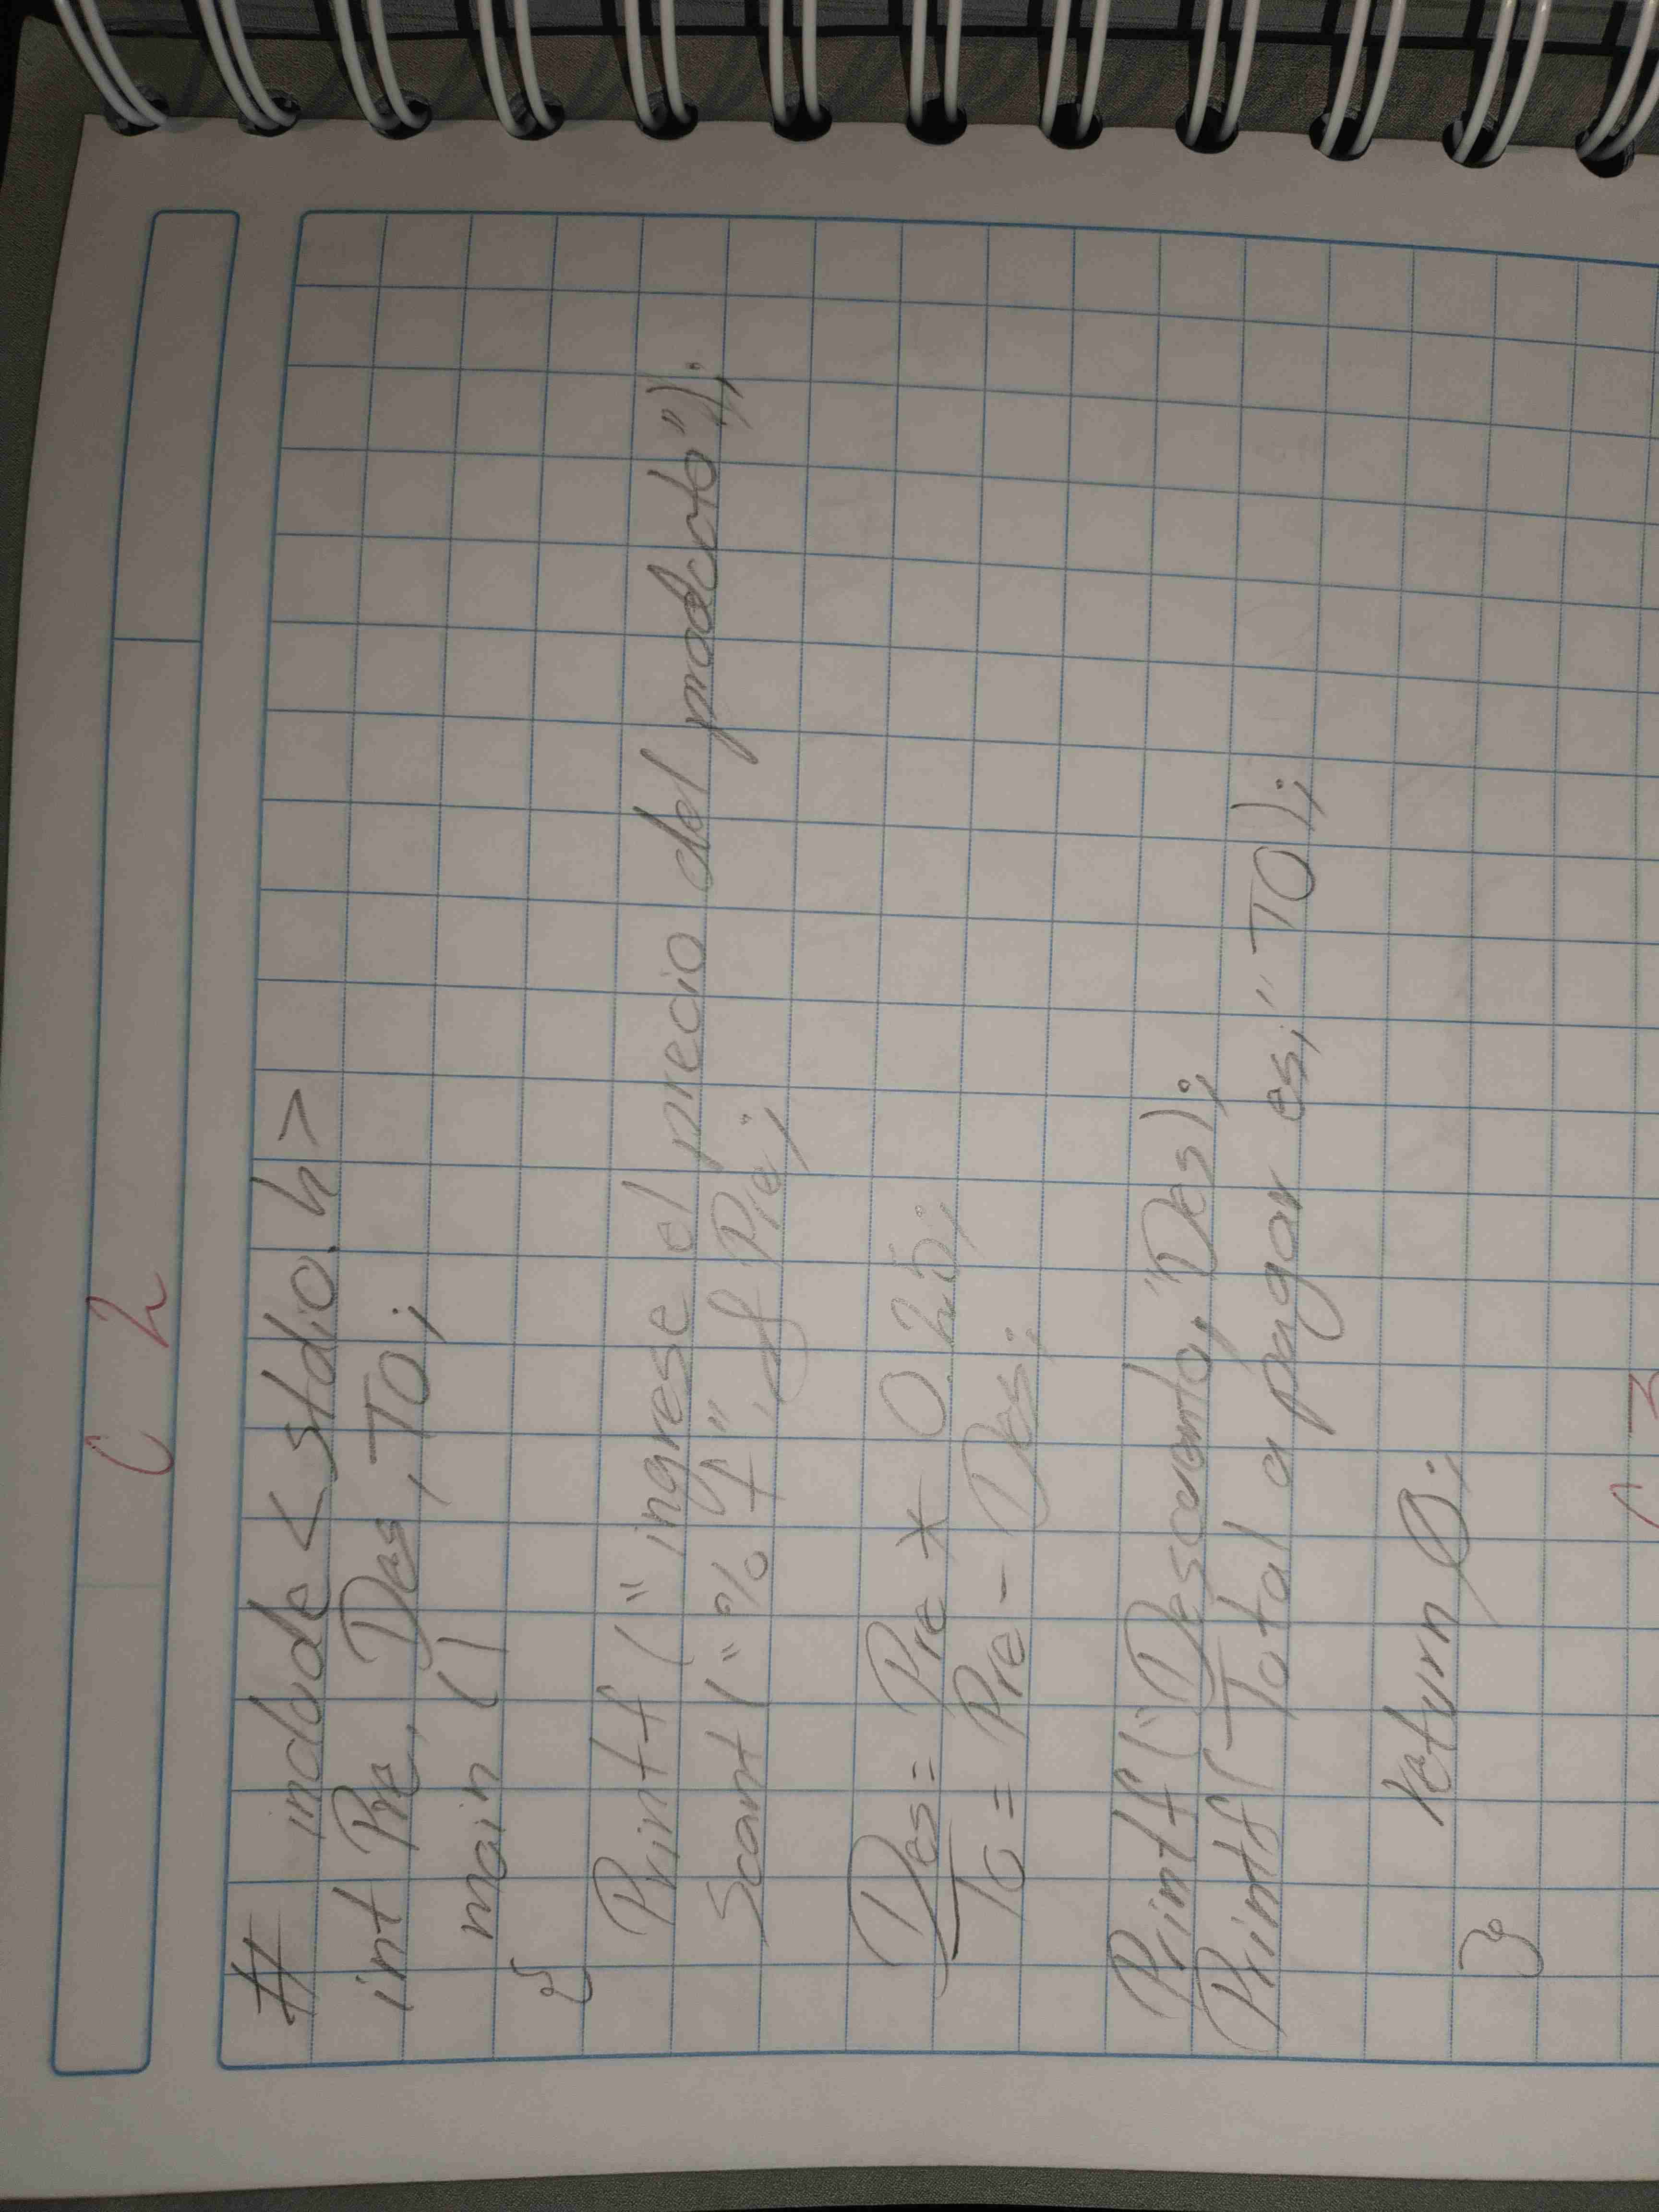 C 2
# include < stdio.h >
int Pre, Des, TO;
main ()
{
Printf ("ingrese el precio del prodcuto");
Scanf ("%f", & Pre;
Des = Pre * 0.25;
To = Pre - Des;
Printf ("Descuento," Des);
Printf( Total a pagar es," TO);
return 0;
}